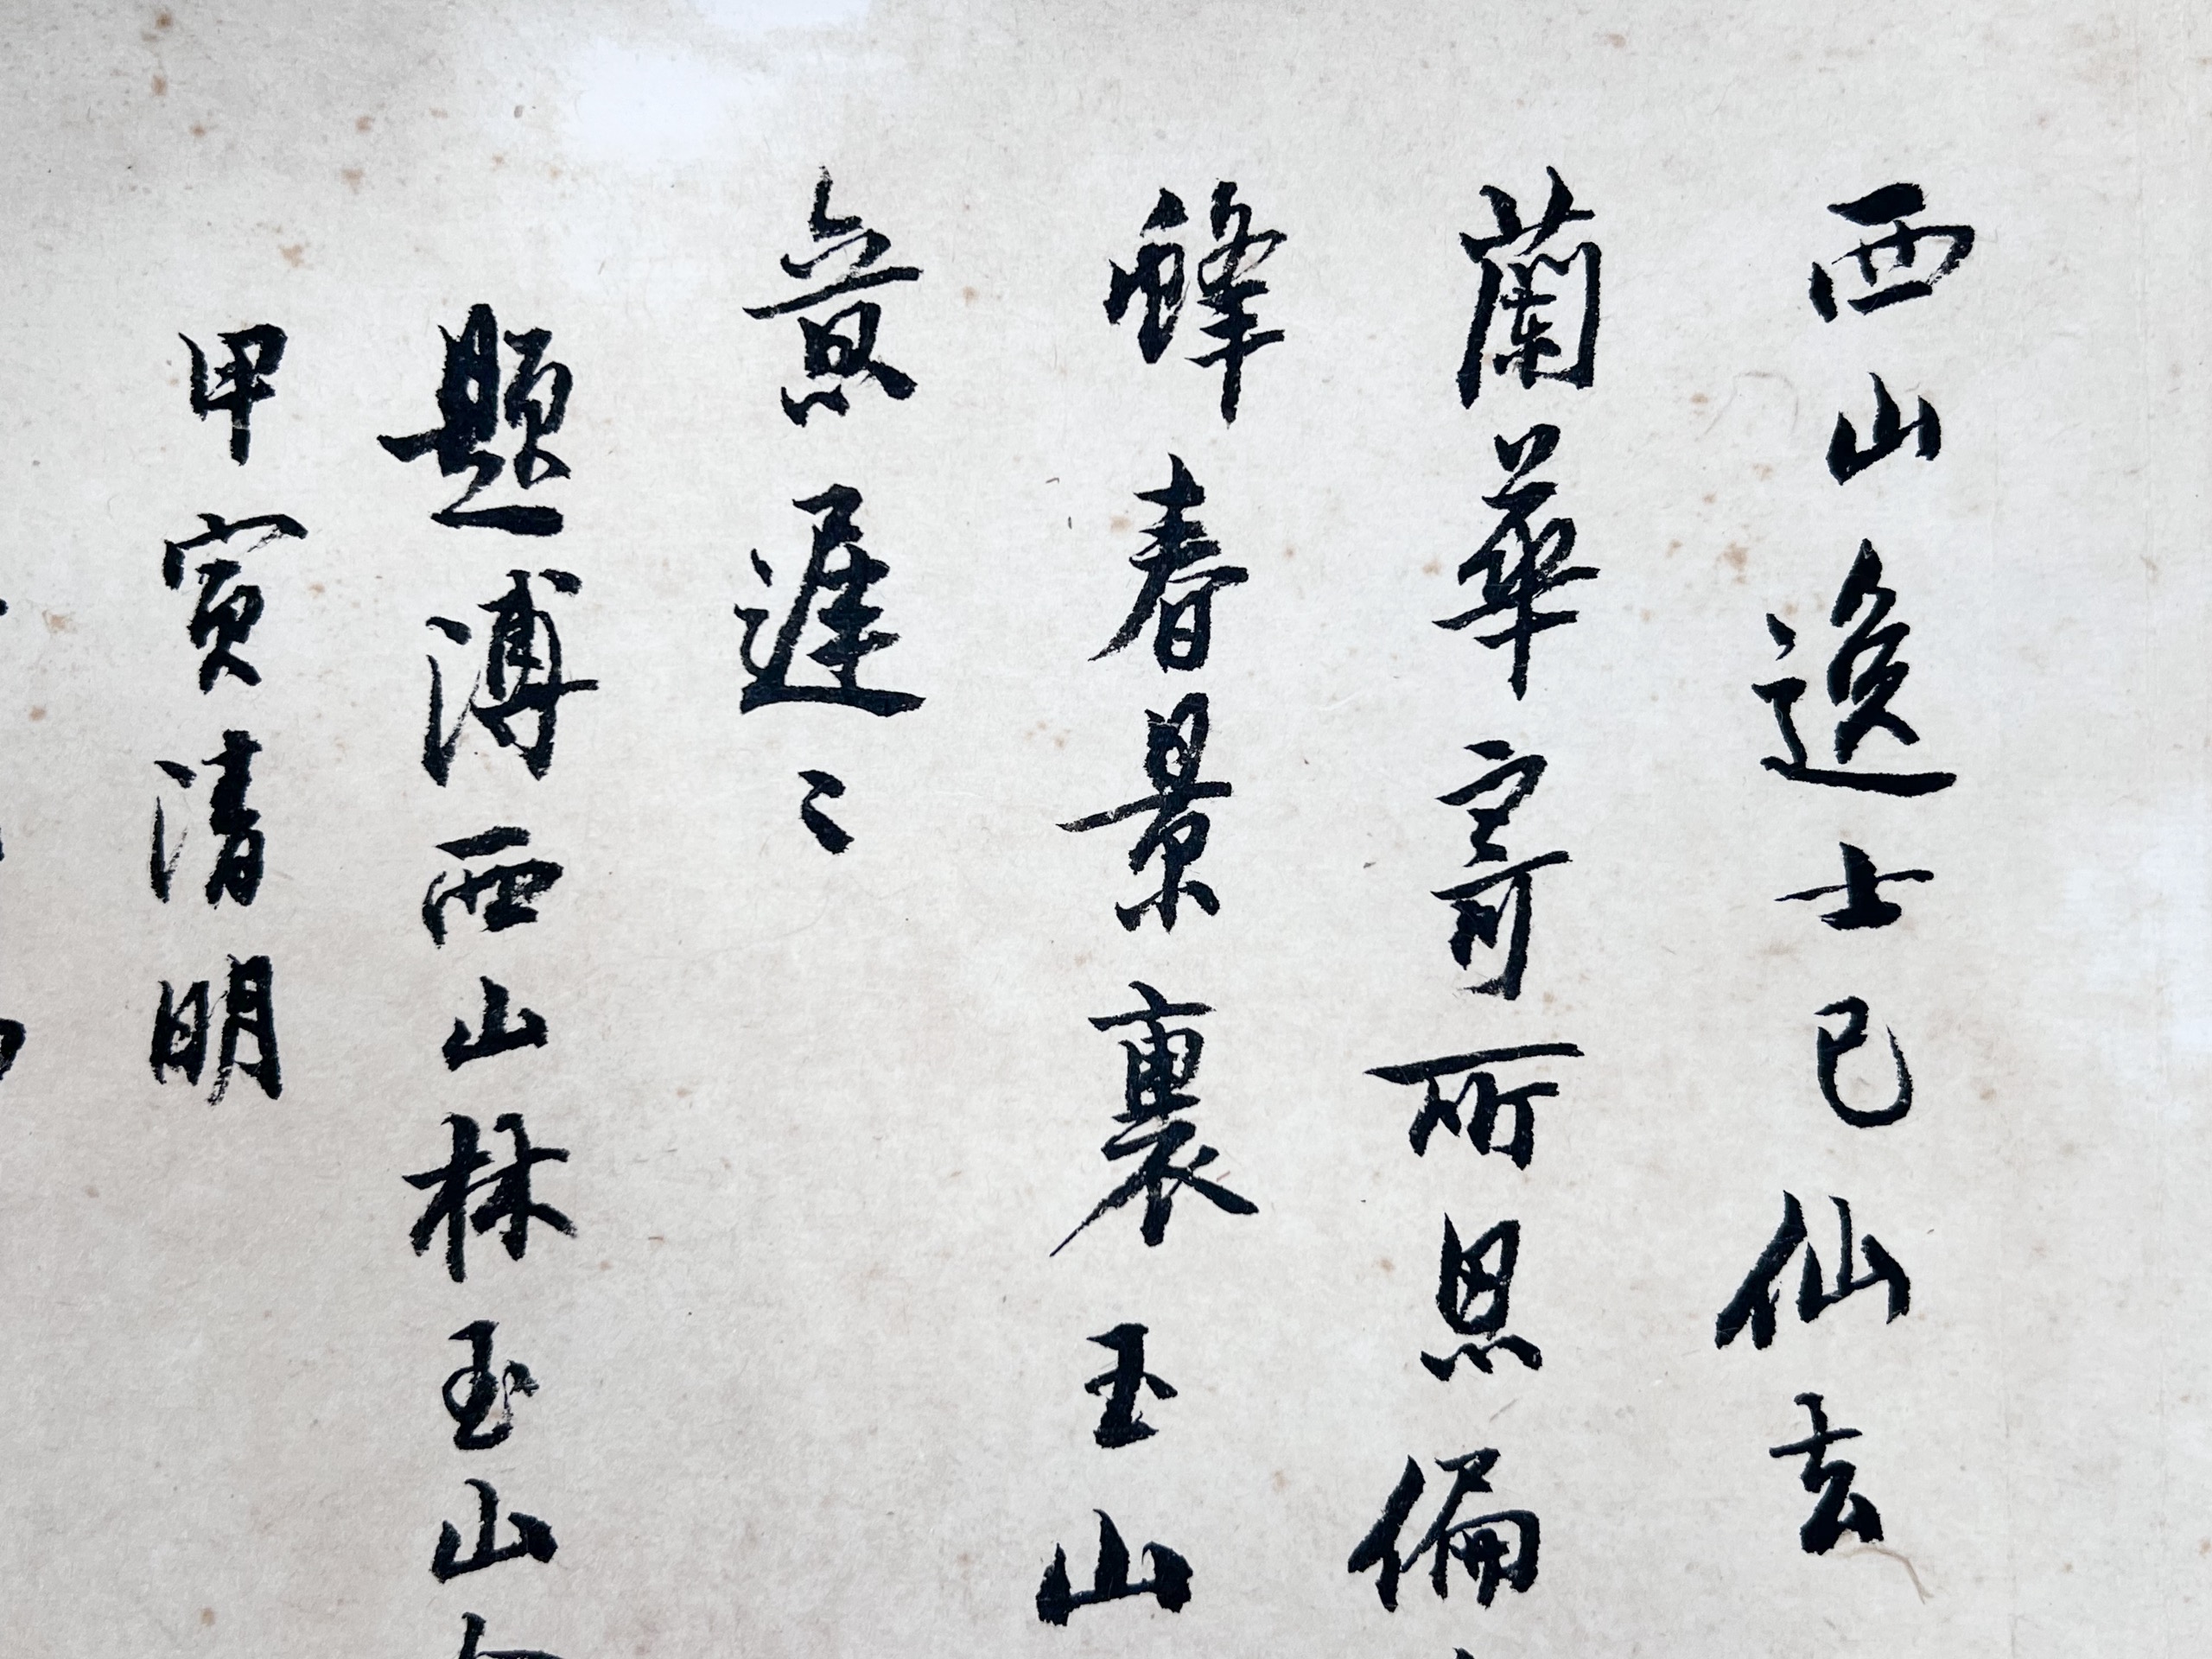 西山逸士已仙去
蘭華寄所思偏
蜂春景裏玉山
意遲〻
題溥西山林玉山
甲寅清明